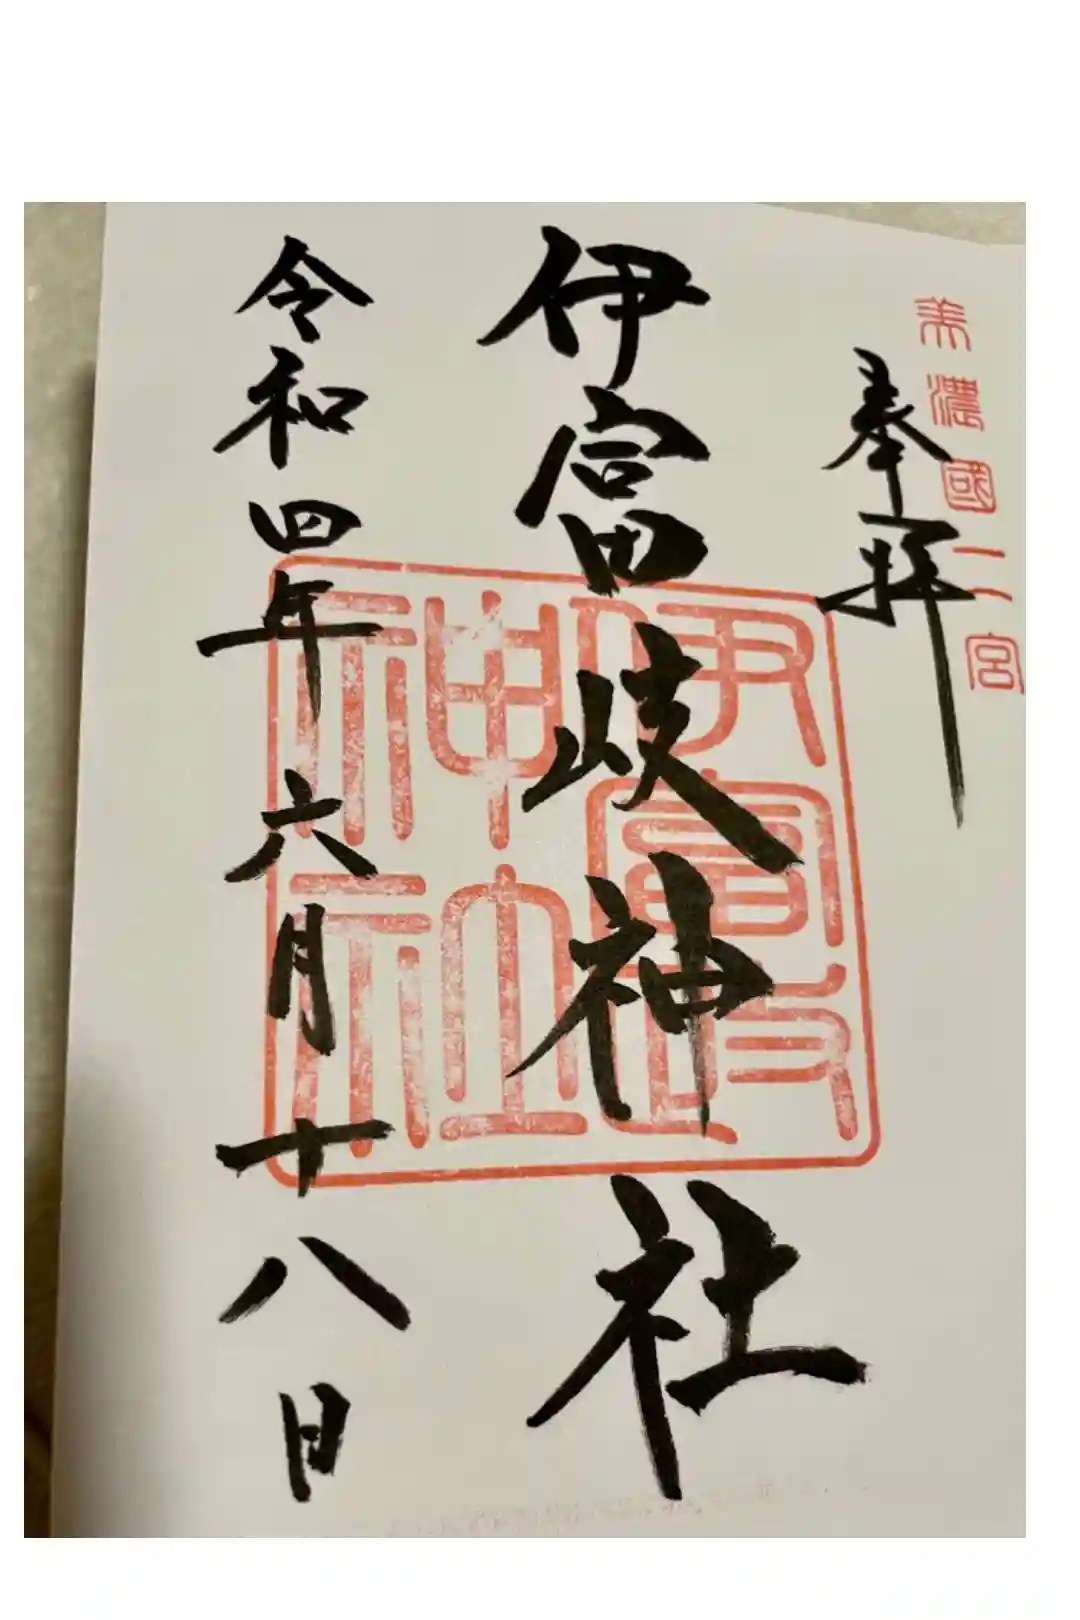 美濃國二宮
奉拝
伊富岐神社
伊富岐神社
令和四年六月十八日